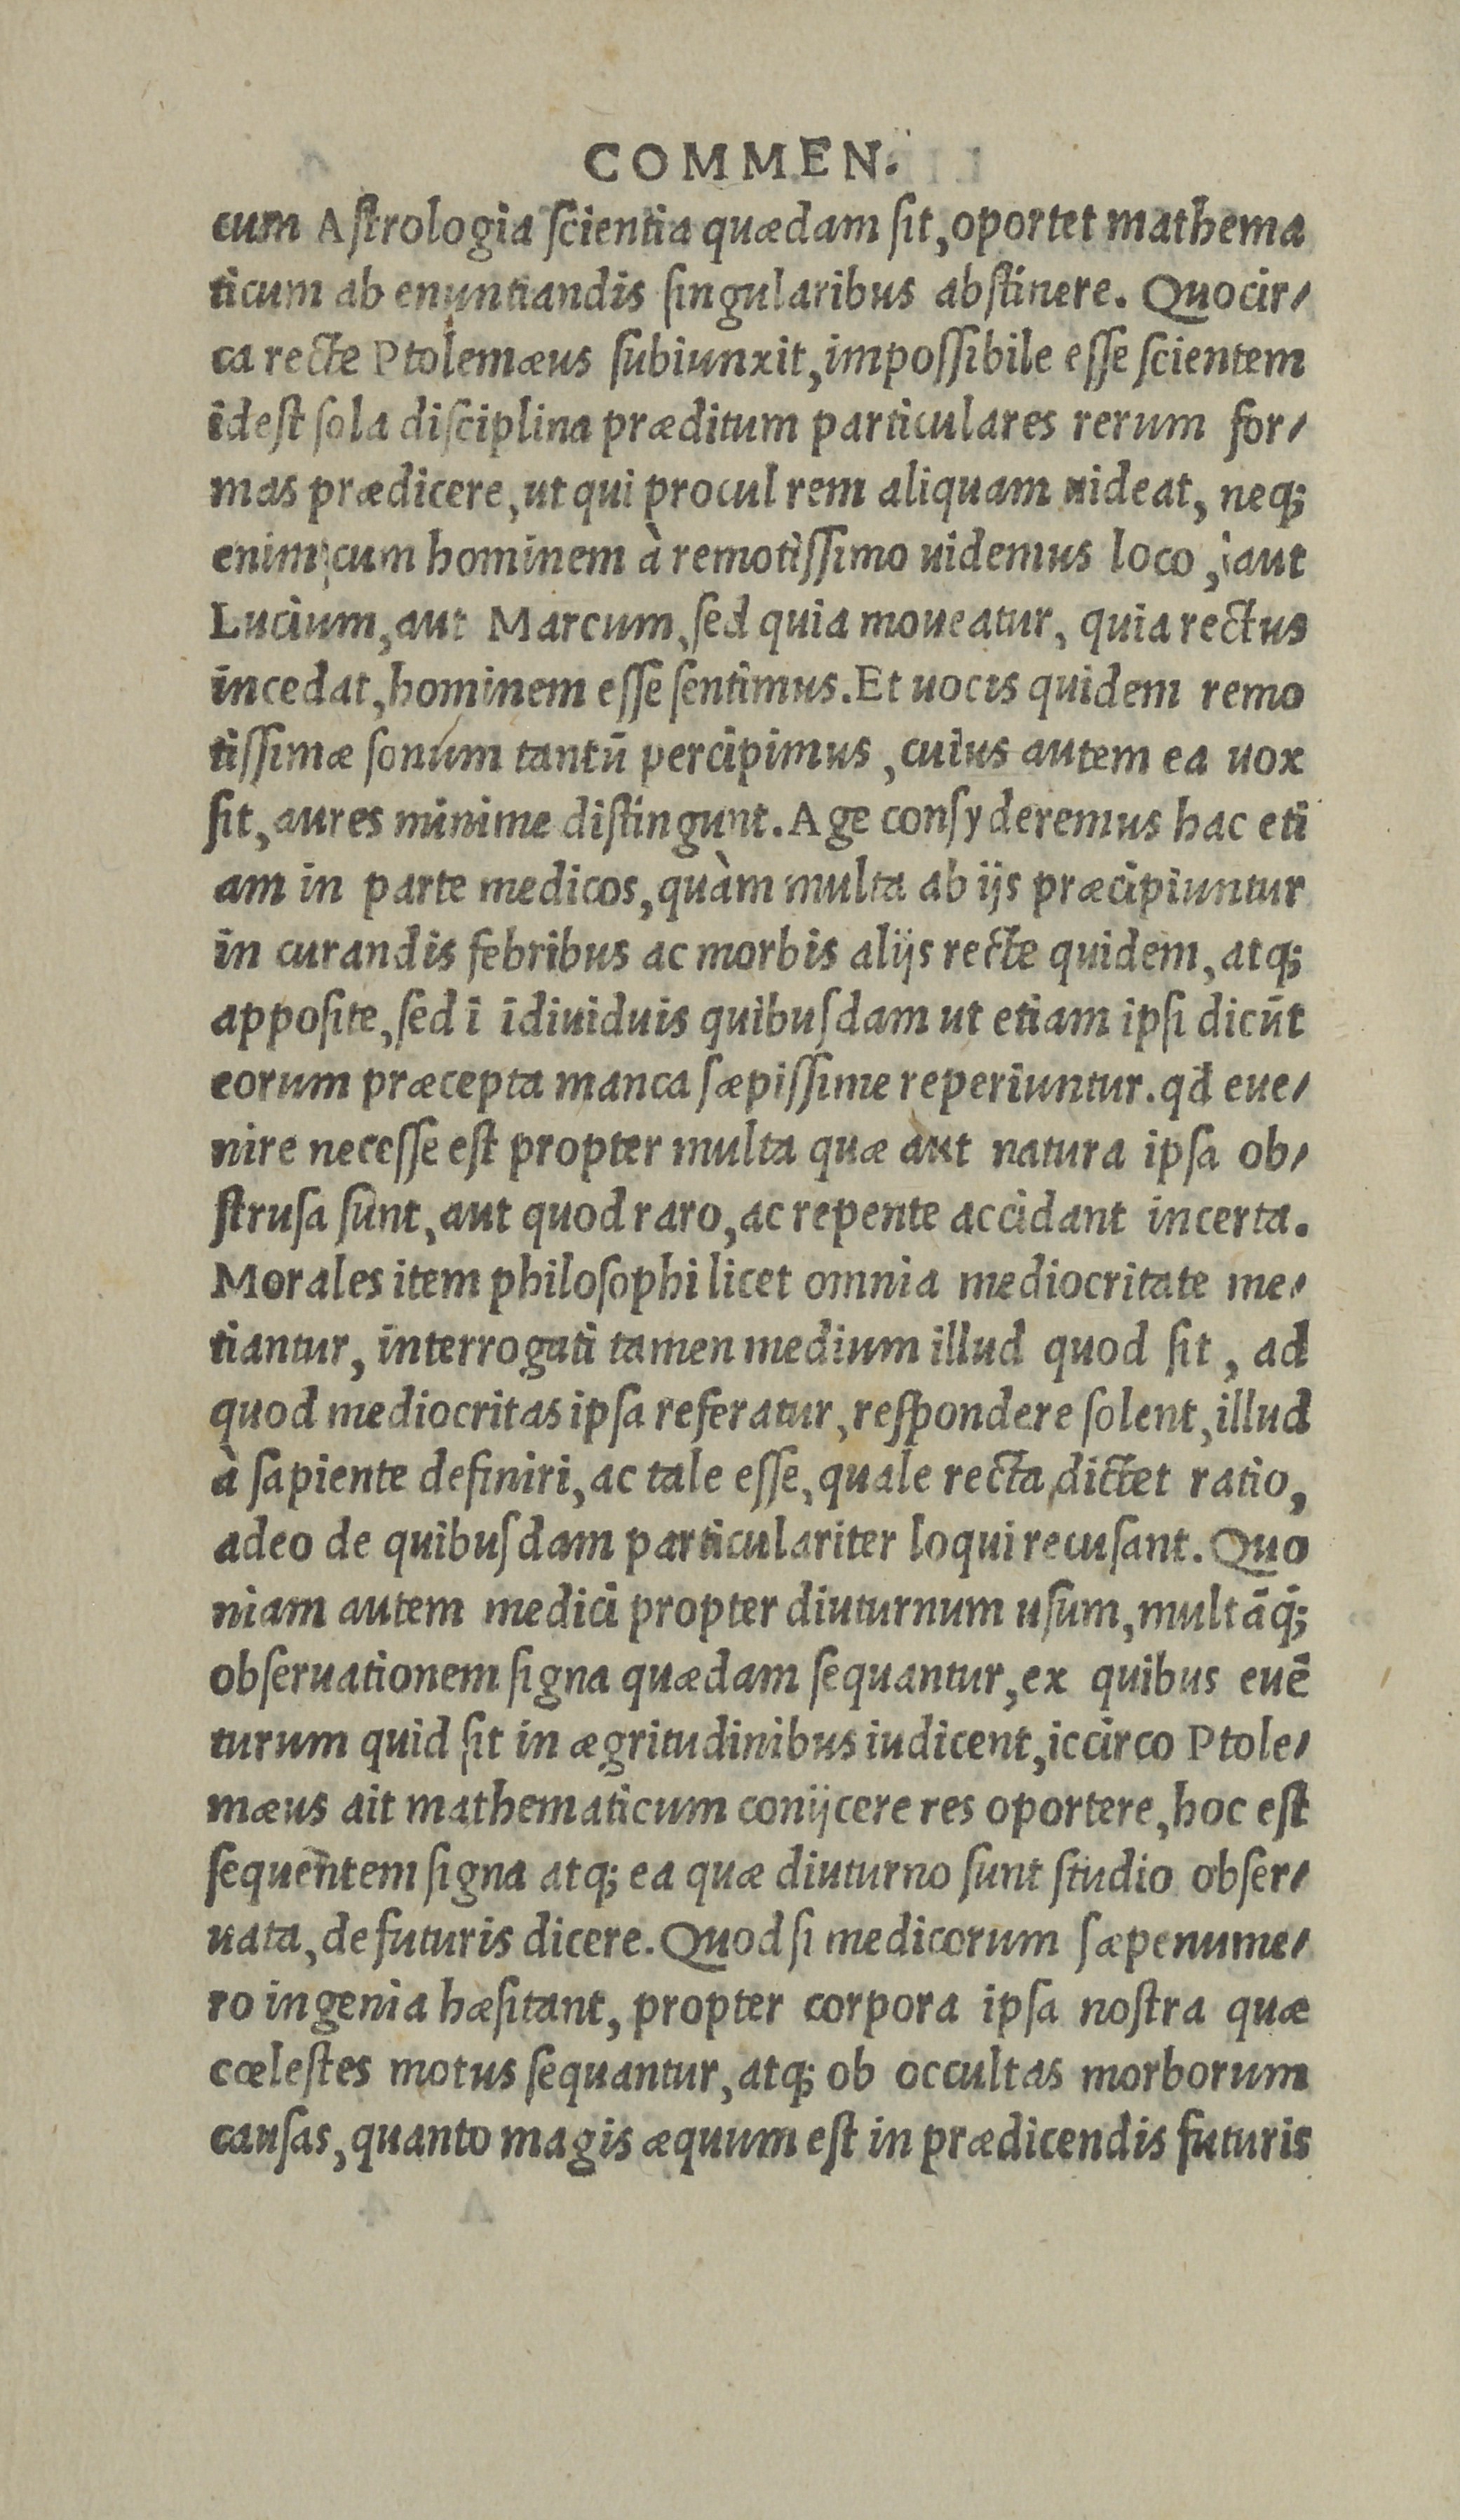 COMMEN.
cum Astrologia scientia quædam sit, oportet mathema
ticum ab enuntiandis singularibus abstinere. Quocir/
ca recte Ptolemæus subiunxit, impossibile esse scientem
idest sola disciplina præditum particulares rerum for/
mas prædicere, ut qui procul rem aliquam uideat, neq;
enim cum hominem à remotissimo uidemus loco, aut
Lucium, aut Marcum, sed quia moueatur, quia rectus
incedat, hominem esse sentimus. Et uocis quidem remo
tissimæ sonum tantū percipimus, cuius autem ea uox
sit, aures minime distingunt. Age consyderemus hac eti
am in parte medicos, quàm multa ab ijs præcipiuntur
in curandis febribus ac morbis alijs recte quidem, atq;
apposite, sed ī īdiuiduis quibusdam ut etiam ipsi dicūt
eorum præcepta manca sæpissime reperiuntur. qd eue/
nire necesse est propter multa quæ aut natura ipsa ob/
strusa sunt, aut quod raro, ac repente accidant incerta.
Morales item philosophi licet omnia mediocritate me/
tiantur, interrogati tamen medium illud quod sit, ad
quod mediocritas ipsa referatur, respondere solent, illud
à sapiente definiri, ac tale esse, quale recta dictet ratio,
adeo de quibusdam particulariter loqui recusant. Quo
niam autem medici propter diuturnum usum, multāq;
obseruationem signa quædam sequantur, ex quibus euē
turum quid sit in ægritudinibus iudicent, iccirco Ptole/
mæus ait mathematicum conijcere res oportere, hoc est
sequentem signa atq; ea quæ diuturno sunt studio obser/
uata, de futuris dicere. Quod si medicorum sæpenume/
ro ingenia hæsitant, propter corpora ipsa nostra quæ
cœlestes motus sequantur, atq; ob occultas morborum
causas, quanto magis æquum est in prædicendis futuris